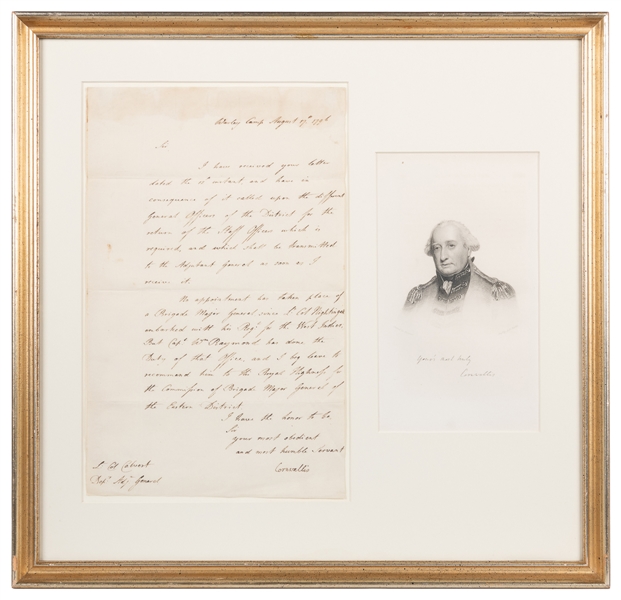 Warley Camp August 17th 1796
Sir
I have received your letter
dated the instant, and have in
consequence of it called upon the different
General Officers of the District for the
return of the Staff Officers which is
required, and which shall be transmitted
to the Adjutant General as soon as I
receive it.
No appointment has taken place of
a Brigade Major General, since Lt Col
embarked with his Regt for the West Indies,
But Capt Wm Raymond has done the
Duty of that Office, and I beg leave to
recommend him to His Royal Highness for
the Commission of Brigade Major General of
the Eastern District.
I have the honor to be,
Sir
your most obedient
and most humble Servant
Cornwallis
Lt Col Calvert
Depy Adjt General
Yours most truly
Cornwallis